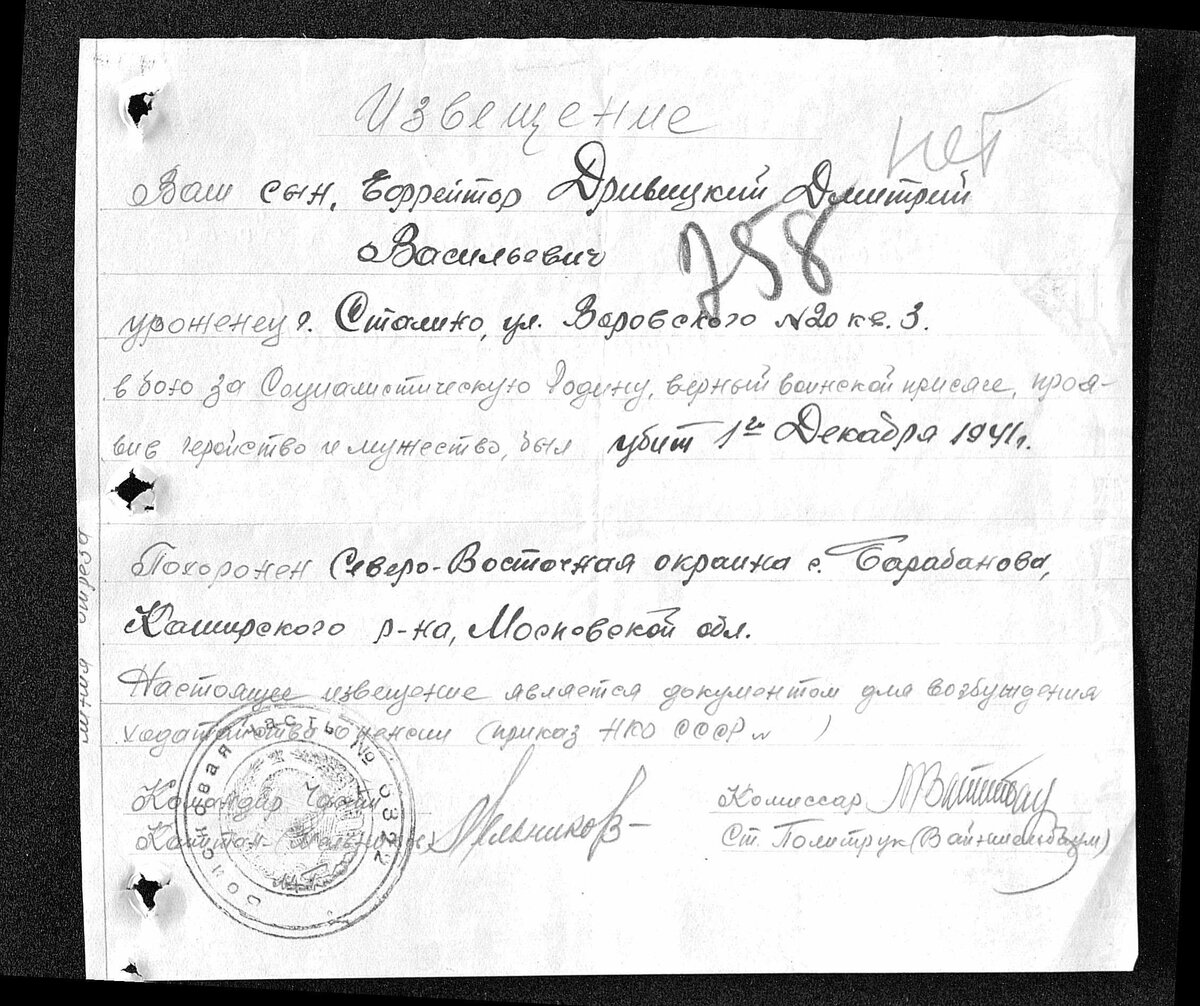 Извещение
нет
Ваш сын, Ефрейтор Дривицкий Дмитрий
Васильевич
758
уроженец г. Сталино, ул. Воровского №20 кв. 3.
в бою за Социалистическую Родину, верный воинской присяге, проя-
вив геройство и мужество, был убит 1го Декабря 1941г.
Похоронен Северо-Восточная окраина с. Барабанова,
Каширского р-на, Московской обл.
Настоящее извещение является документом для возбуждения
ходатайства о пенсии (приказ НКО СССР № )
Командир Части Мельников Комиссар
Капитан (Мельников) Ст. Политрук (Вайншельбаум)
войсковая часть №
линия отреза